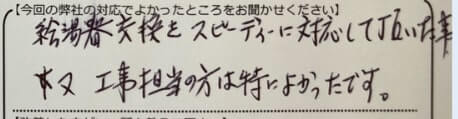 【今回の弊社の対応でよかったところをお聞かせください】
給湯器交換をスピーディーに対応して頂いた事
又 工事担当の方は特によかったです。